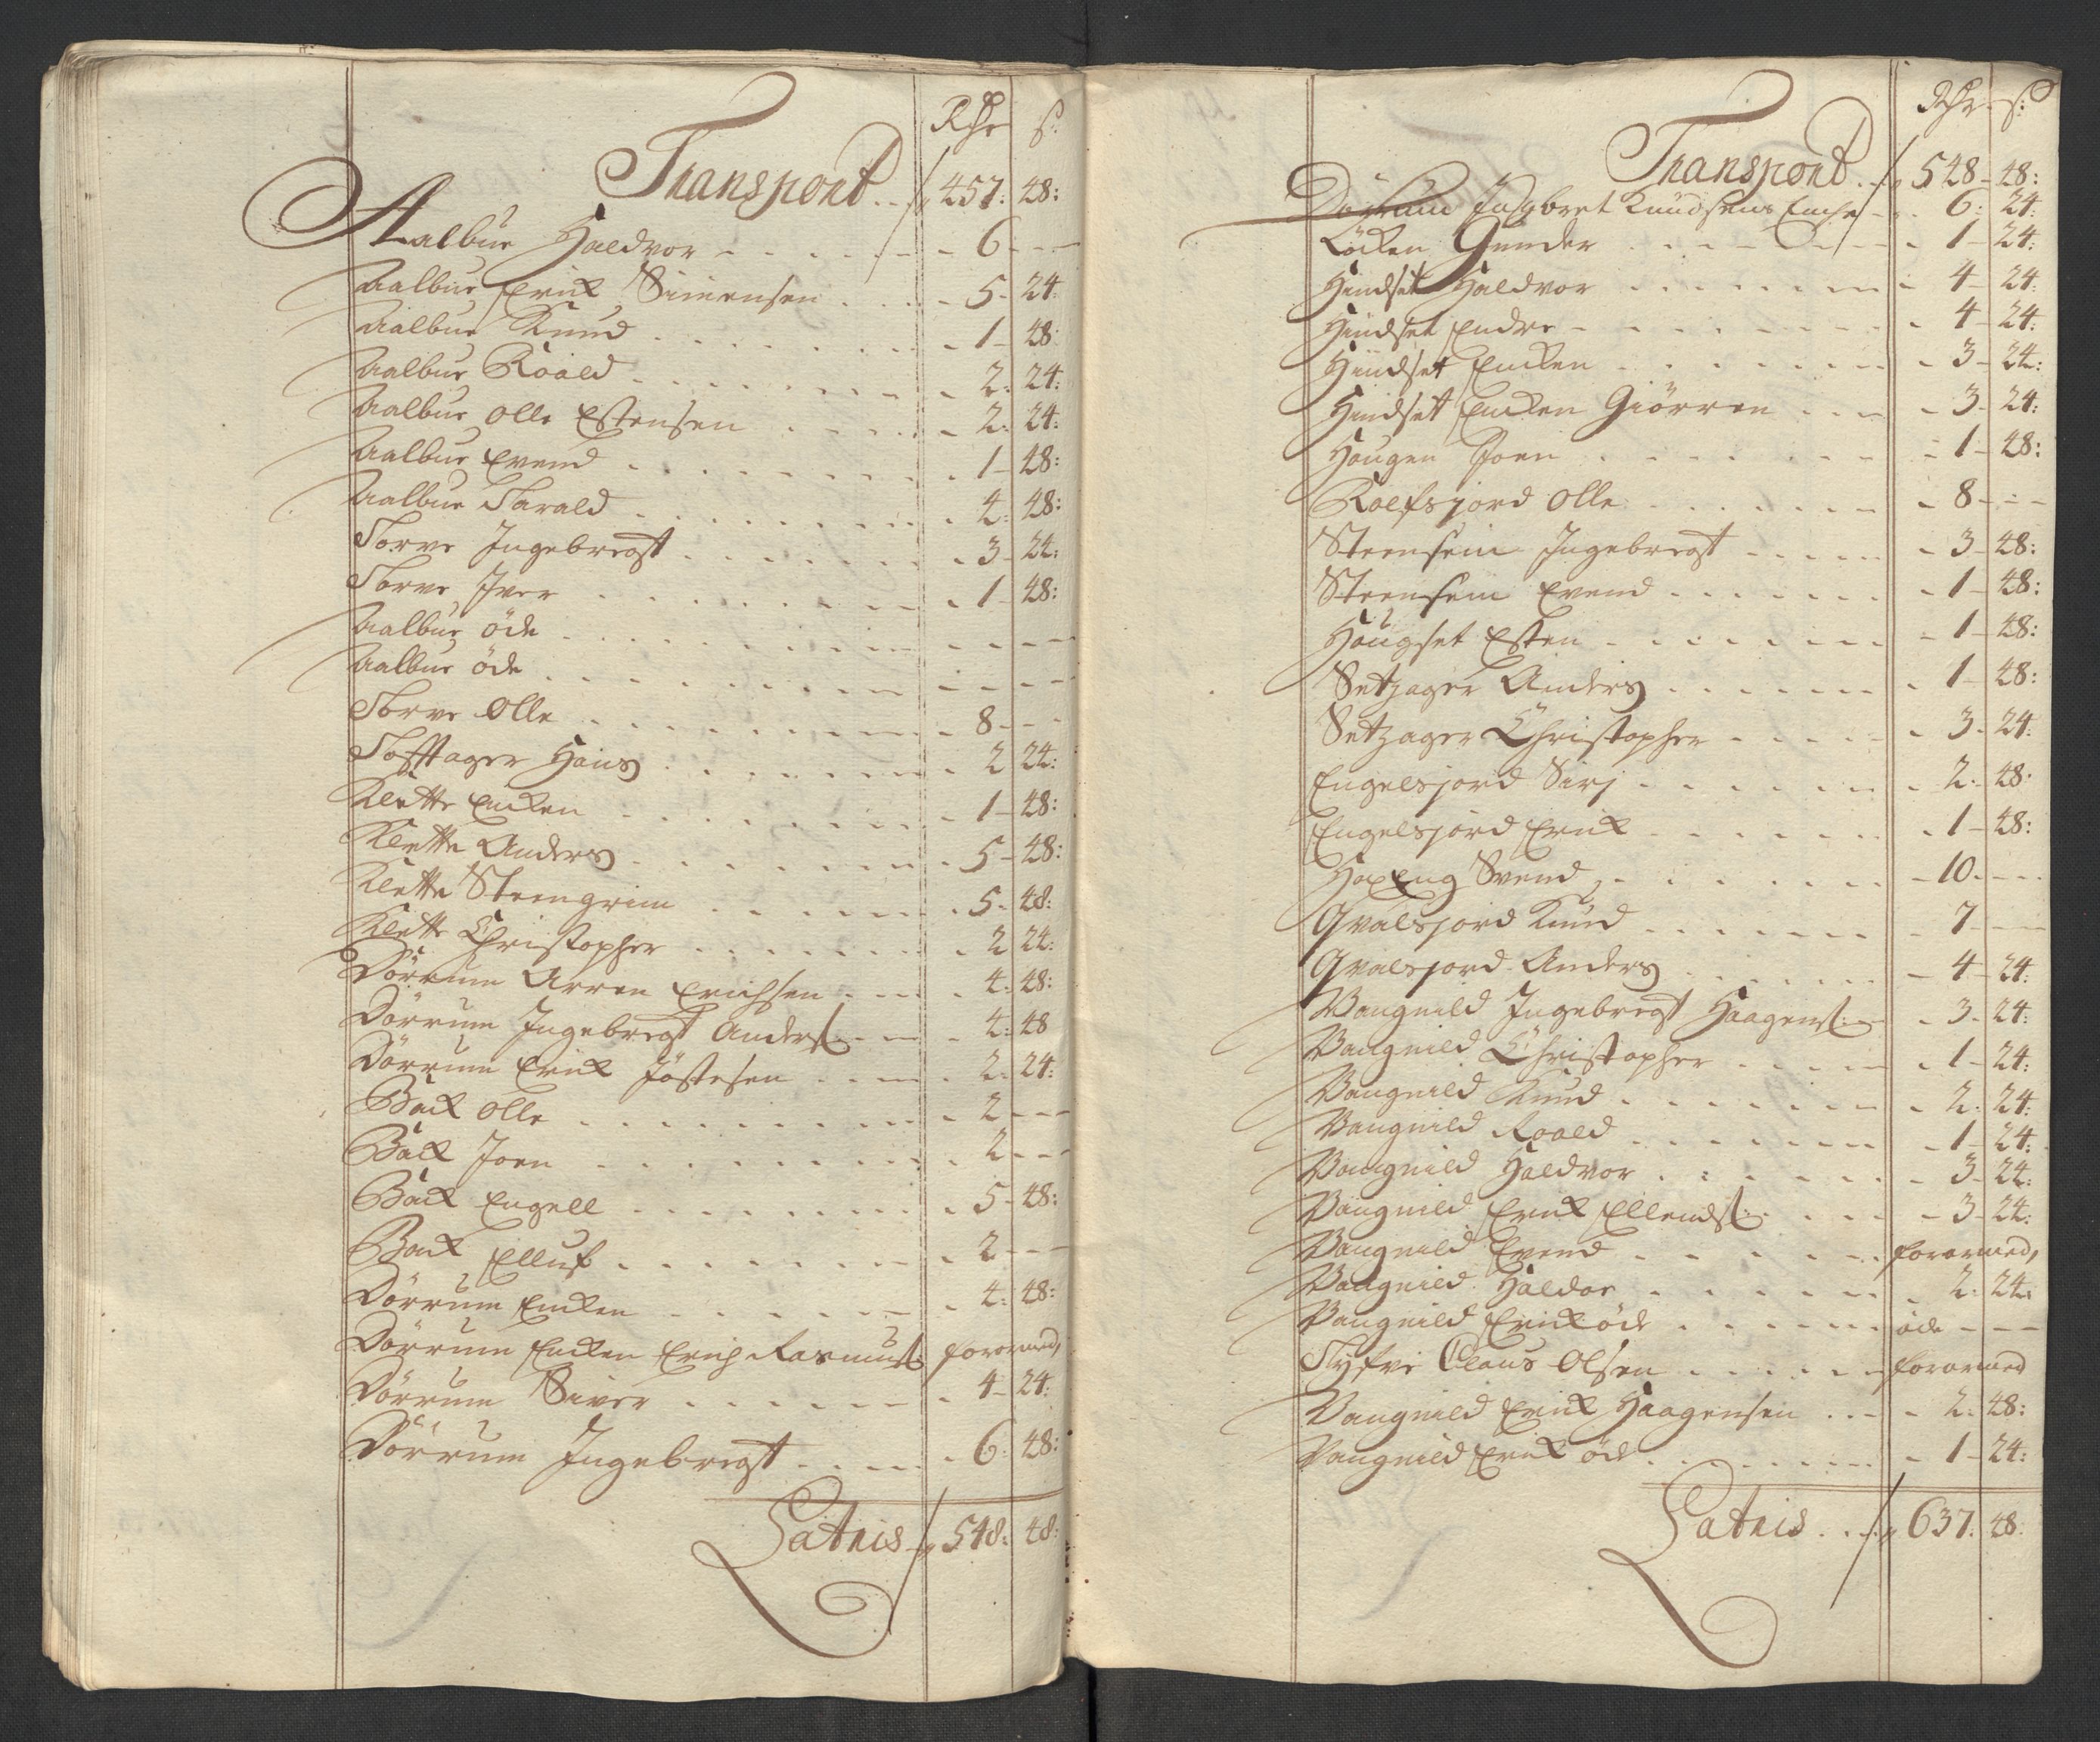 Rdr s:
Transport . . 457: 48:
Aalbue Haldvor - - - - - 6 - - -
Aalbue Erick Simensen . . . . 5 - 24:
Aalbue Knud . . . . . . 1 - 48:
Aalbue Roald . . . . . . 2: 24:
Aalbue Olle Estensen . . . . 2: 24:
Aalbue Evend . . . . . . 1 - 48:
Aalbue Harald . . . . . . 4: 48:
Torve Ingebregt . . . . . . 3 - 24:
Torve Iver . . . . . . 1 - 48:
Aalbue öde . . . . . . - - -
Aalbue öde . . . . . . - - -
Torve Olle . . . . . . 8 - - -
Tofftager Hans . . . . . . 2 24:
Klette Encken . . . . . . 1 - 48:
Klette Anders . . . . . . 5 - 48:
Klette Steengrim . . . . . . 5 - 48:
Klette Christopher . . . . . . 2 24:
Dörrum Arren Erichsen . . . . 4: 48:
Dörrum Ingebregt Anders: - - 4: 48
Dörrum Erick Jöstesen . . . . 2: 24:
Back Olle . . . . . . 2 - - -
Back Joen . . . . . . 2 - - -
Back Engell . . . . . . 5 - 48:
Back Elluf . . . . . . 2 - - -
Dörrum Encken . . . . . . 4: 48:
Dörrum Encken Erich Rasmus: forarmed,
Dörrum Siver . . . . . . 4 - 24:
Dörrum Ingebregt . . . . . . 6: 48:
Latris 548: 48:
Rdr s:
Transport . . 548 - 48:
Dörrum Ingbret Knudsens Enche - - 6: 24:
Löcken Gunder . . . . . . 1 - 24:
Hindset Haldvor . . . . . . 4 - 24:
Hindset Endre . . . . . . 4 - 24:
Hindset Encken . . . . . . 3 - 24:
Hindset Encken Giörren . . . . 3 - 24:
Haugen Joen . . . . . . 1 - 48:
Rolfsjord Olle . . . . . . 8 - - -
Steensem Ingebregt . . . . . . 3 - 48:
Steensem Evend . . . . . . 1 - 48:
Haugset Esten . . . . . . 1 - 48:
Setzager Anders . . . . . . 1 - 48:
Setzager Christopher . . . . . . 3 - 24:
Engelsjord Siri . . . . . . 2: 48:
Engelsjord Erick . . . . . . 1 - 48:
Svend . . . . . . 10. - - -
Qvalsjord Knud . . . . . . 7 - - -
Qvalsjord Anders . . . . . . 4 - 24:
Vangnild Ingebregt Haagens: - - 3 - 24:
Vangnild Christopher . . . . . . 1 - 24:
Vangnild Knud . . . . . . 2: 24:
Vangnild Roald . . . . . . 1 - 24:
Vangnild Haldvor . . . . . . 3 - 24:
Vangnild Erick Ellends: . . . . 3 - 24:
Vangnild Evend . . . . . . forarmed,
Vangnild Haldor . . . . . . 2: 24:
Vangnild Erick öde . . . . . . öde - - -
Claus Olsen . . . . . . forarmed
Vangnild Erick Haagensen . . . 2: 48:
Vangnild Erick öde . . . . . . 1 - 24:
Latris . . 637: 48: